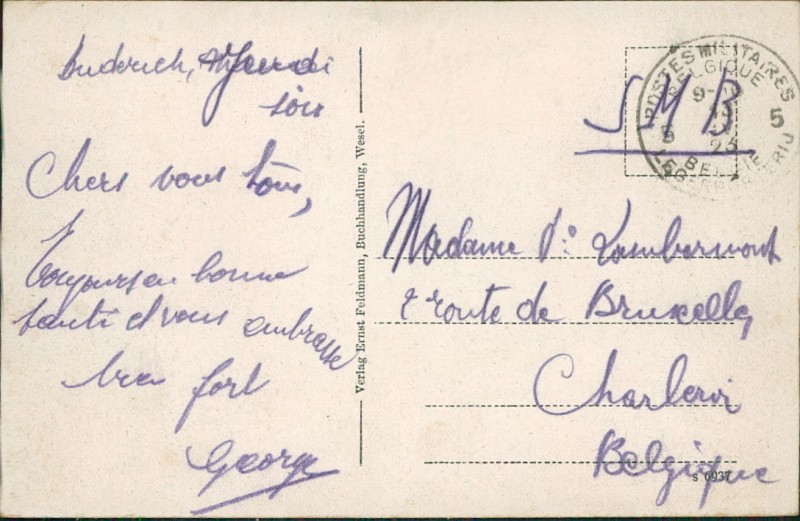 Buderich,
soir
Chers vous tous,
Toujours en bonne
santé et vous embrasse
bien fort
George
Verlag Ernst Feldmann, Buchhandlung, Wesel.
POSTES MILITAIRES
BELGIQUE
5 5
23
BELGIE
LEGERPOSTERIJ
S M B
Madame
route de Bruxelles
Charleroi
Belgique
S 6937